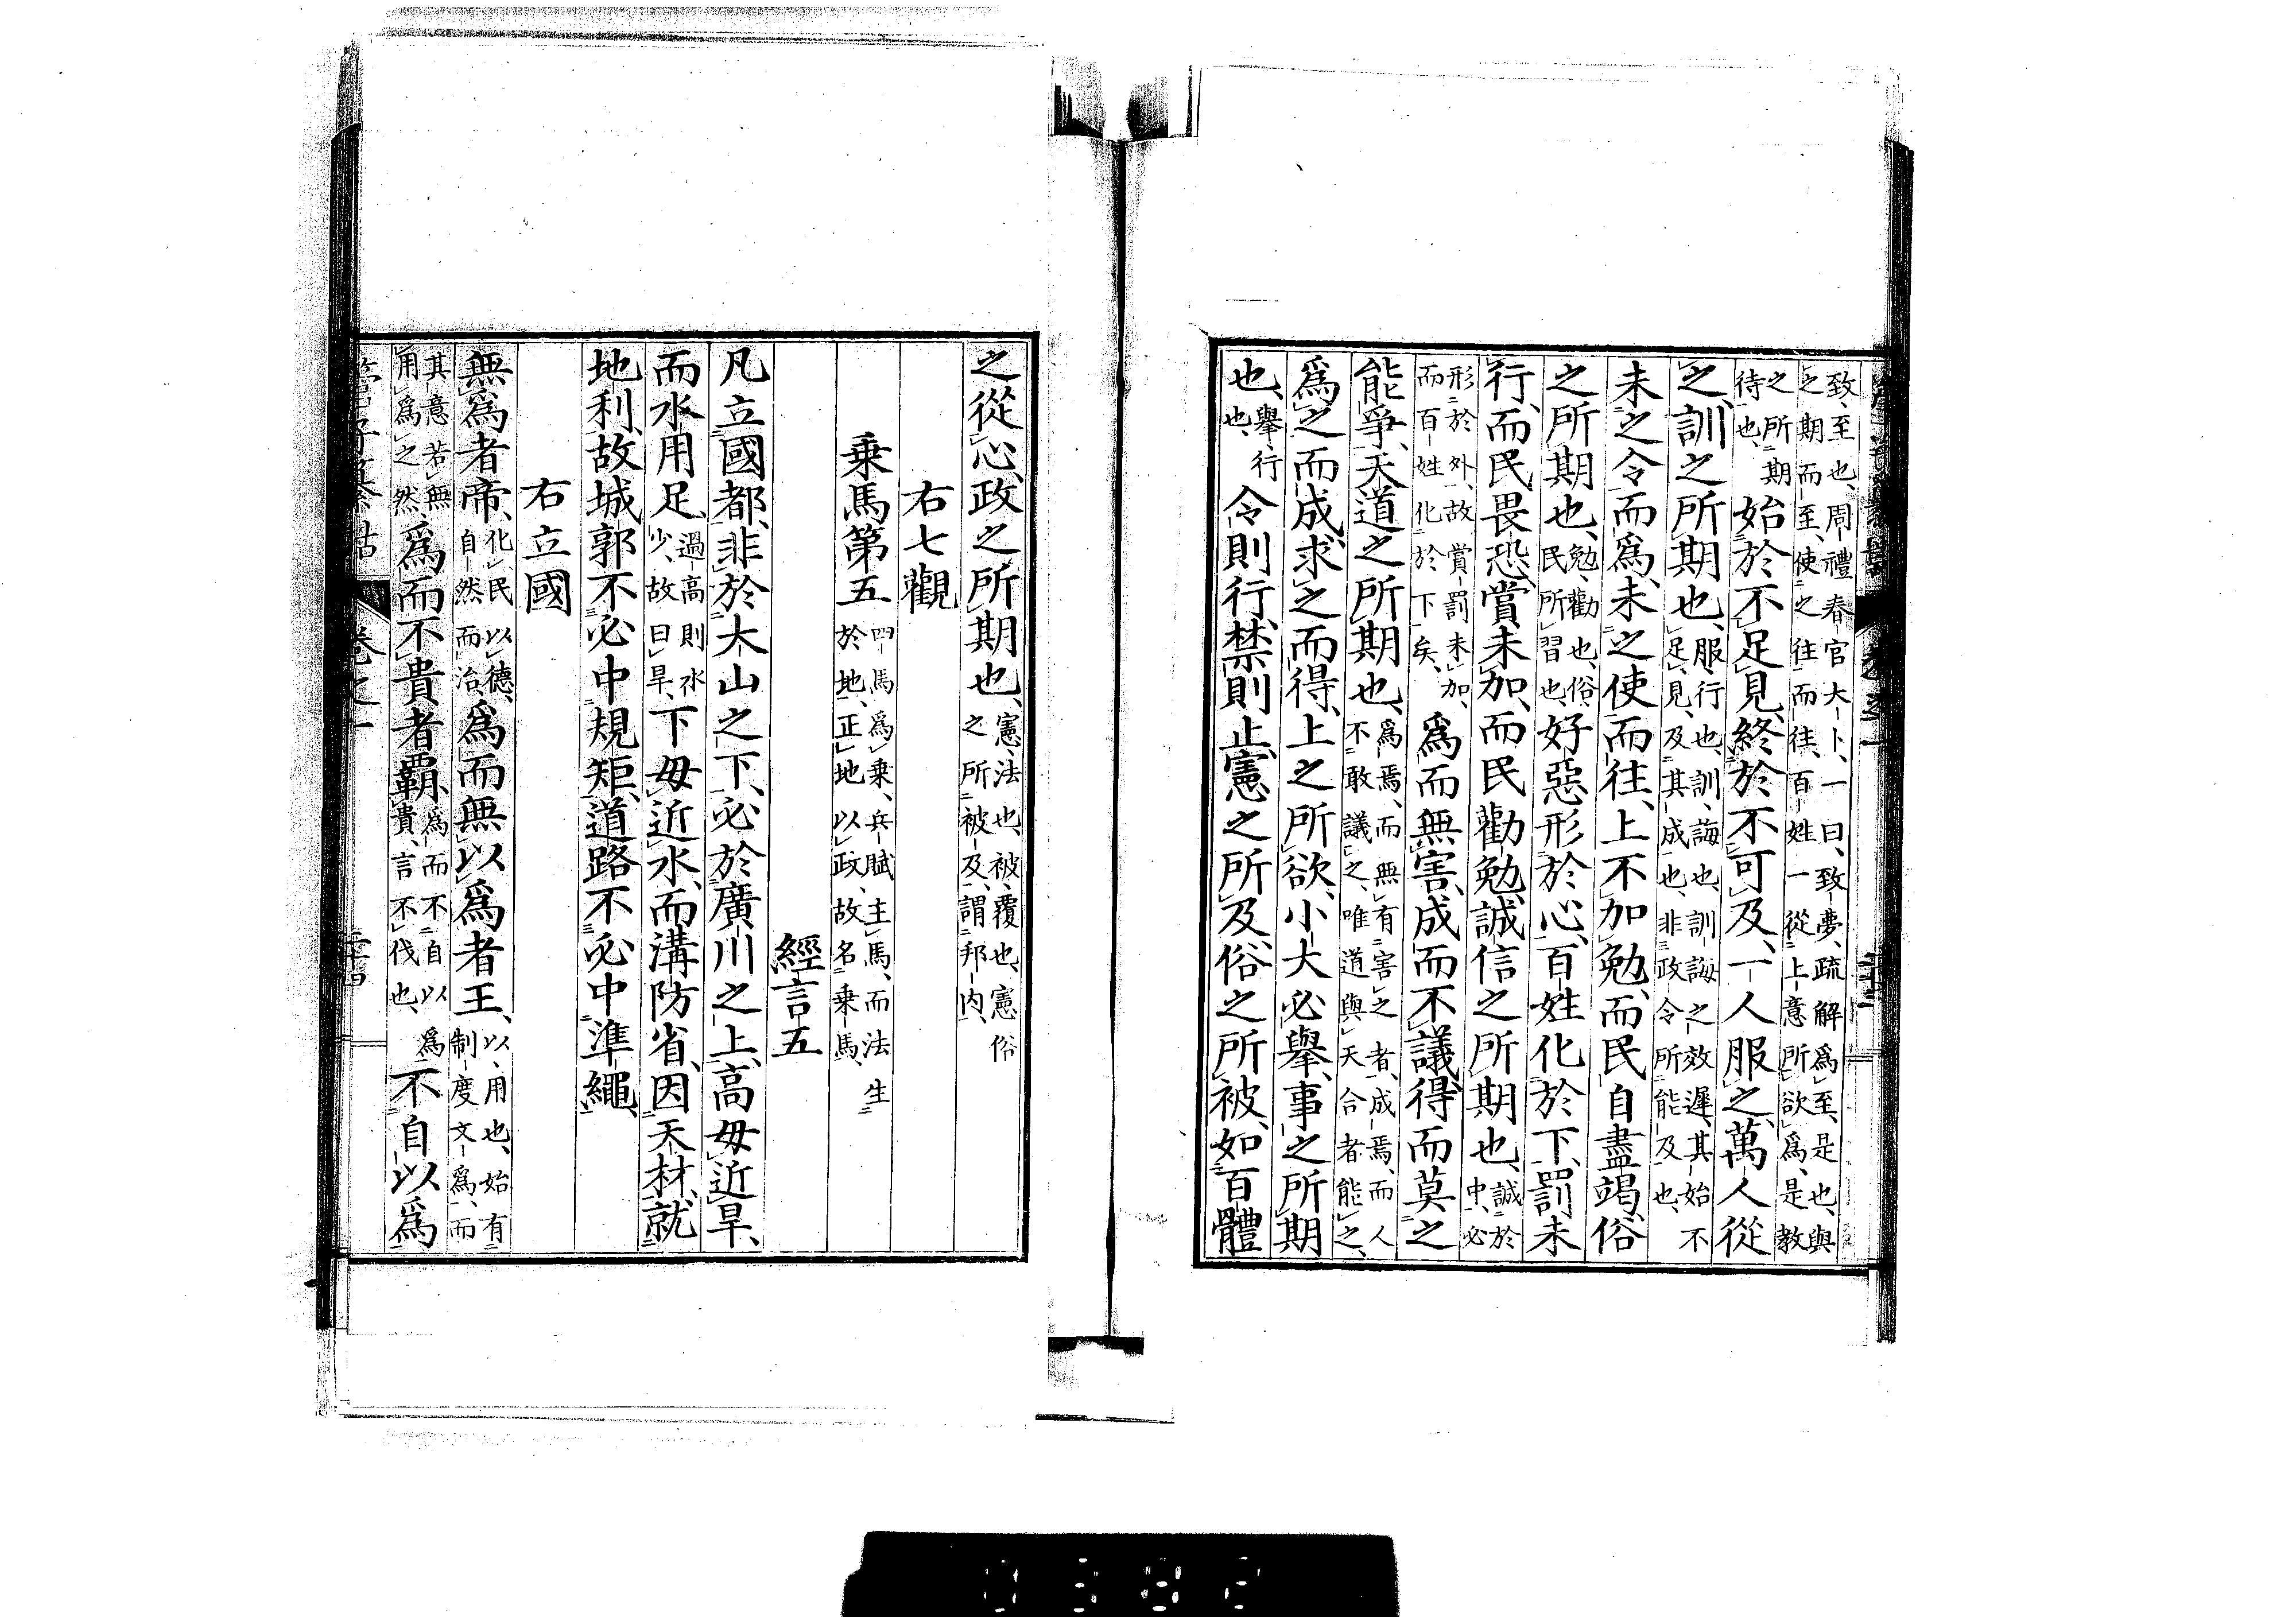 致、至也、周禮春官大卜、一曰、致夢、疏解爲至、是也、與
之期而至、使之往而往、百姓一從上意所欲爲、是教
之所期
待也、
始於不足見、終於不可及、一人服之、萬人從
之、訓之所期也、
服、行也、訓、誨也、訓誨之效遲、其始不
足見、及其成也、非政令所能及也、
未之令而爲、未之使而往、上不加勉、而民自盡竭、俗
之所期也、
勉、勸也、俗、
民所習也、
好惡形於心、百姓化於下、罰未
行、而民畏恐、賞未加、而民勸勉、誠信之所期也、
誠於
中、必
形於外、故賞罰未加、
而百姓化於下矣、
爲而無害、成而不議、得而莫之
能爭、天道之所期也、
爲焉、而無有害之者、成焉、而人
不敢議之、唯道與天合者能之、
爲之而成、求之而得、上之所欲、小大必舉、事之所期
也、
舉、行
也、
令則行、禁則止、憲之所及、俗之所被、如百體
之從心、政之所期也、
憲、法也、被、覆也、憲俗
之所被及、謂邦内、
右七觀
乗馬第五
四馬爲乗、兵賦主馬、而法生
於地、正地以政、故名乗馬、
經言五
凡立國都、非於大山之下、必於廣川之上、高毋近旱、
而水用足、
過高則水
少、故曰旱、
下毋近水、而溝防省、因天材、就
地利、故城郭不必中規矩、道路不必中準繩、
右立國
無爲者帝、
化民以德、
自然而治、
爲而無以爲者王、
以、用也、始有
制度文爲、而
其意若無
用爲之然、
爲而不貴者霸、
爲而不自以爲
貴、言不伐也、
不自以爲
卷之一
二十四